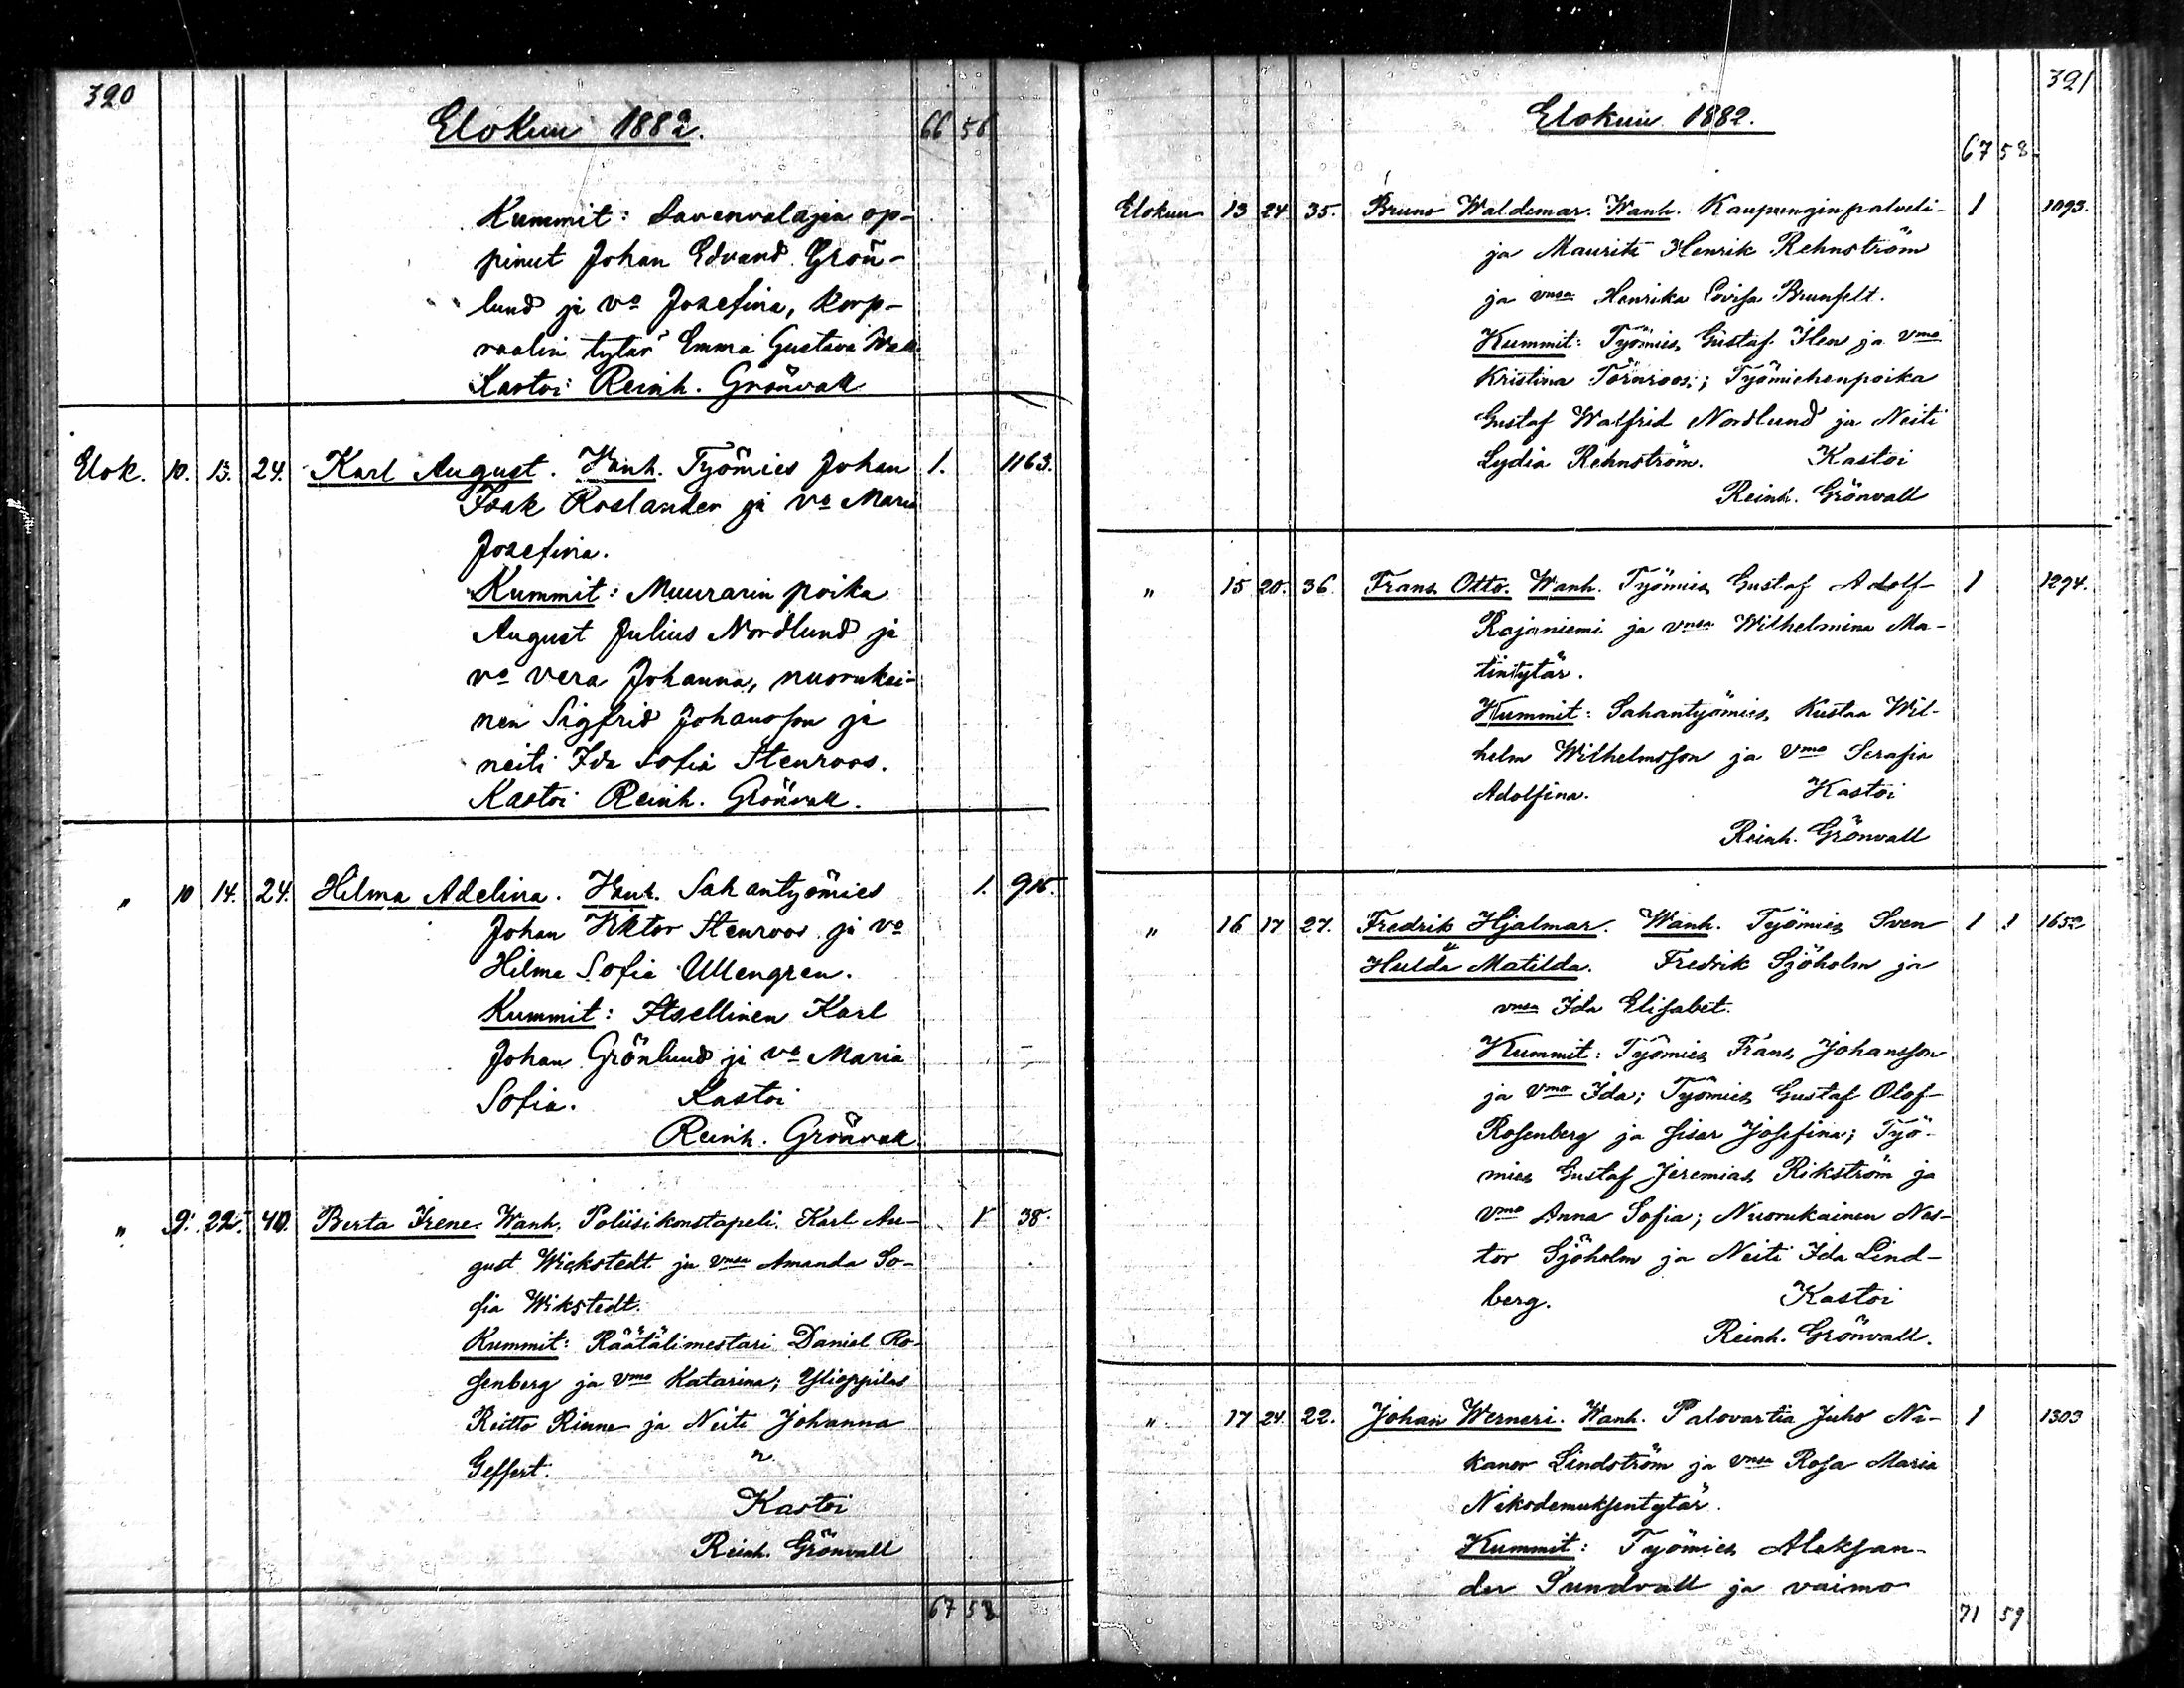 320
Elokuu 1882. 66 56
Kummit: Savenvalajan op-
pinut Johan Edvard Grön-
lund ja vo Josefina, Korp-
raalin tytär Emma Gustava Wall.
Kastoi Reinh. Grönvall
Elok. 10. 13. 24. Karl August. Vanh. Työmies Johan 1. 1163.
Isak Roslander ja vo Maria
Josefina.
Kummit: Muurarin poika
August Julius Nordlund ja
vo Vera Johanna, nuorukai-
nen Sigfrid Johansson ja
neiti Ida Sofia Stenroos.
Kastoi Reinh. Grönvall.
" 10 14. 24. Hilma Adelina. Vanh. Sahantyömies 1. 916.
Johan Viktor Stenroos ja vo
Hilma Sofia Ullengren.
Kummit: Itsellinen Karl
Johan Grönlund ja vo Maria
Sofia. Kastoi
Reinh. Grönvall
" 9. 22. 40. Berta Irene. Wanh. Poliisikonstapeli Karl Au- 1 38.
gust Wickstedt ja vnsa Amanda So-
fia Wikstedt.
Kummit: Räätälimestari Daniel Ro-
senberg ja vmo Katarina; Ylioppilas
Reitto Rinne ja Neiti Johanna
Geffert.
Kastoi
Reinh. Grönvall
67 58.
321
Elokuu 1882.
67 58.
Elokuu 13 24 35. Bruno Waldemar. Wanh. Kaupunginpalveli- 1 1093.
ja Maurits Henrik Rehnström
ja vnsa Henrika Lovisa Brunfelt.
Kummit: Työmies Gustaf Ilen ja vmo
Kristina Törnroos; Työmiehenpoika
Gustaf Walfrid Nordlund ja Neiti
Lydia Rehnström. Kastoi
Reinh. Grönvall
" 15 20. 36. Frans Otto. Wanh. Työmies Gustaf Adolf 1 1294.
Rajaniemi ja vnsa Wilhelmina Ma-
tintytär.
Kummit: Sahantyömies Kustaa Wil-
helm Wilhelmsson ja vmo Serafia
Adolfina. Kastoi
Reinh. Grönvall
" 16 17 27. Fredrik Hjalmar. Wanh. Työmies Sven 1 1 1652
Hulda Matilda. Fredrik Sjöholm ja
vnsa Ida Elisabet.
Kummit: Työmies Frans Johansson
ja vmo Ida; Työmies Gustaf Olof
Rosenberg ja sisar Josefina; Työ-
mies Gustaf Jeremias Rikström ja
vmo Anna Sofia; Nuorukainen Nes-
tor Sjöholm ja Neiti Ida Lind-
berg. Kastoi
Reinh. Grönvall.
" 17 24. 22. Johan Werneri. Wanh. Palovartia Juho Ni- 1 1303
kanor Lindström ja vnsa Rosa Maria
Nikodemuksentytär.
Kummit: Työmies Aleksan-
der Sundvall ja vaimo
71 59